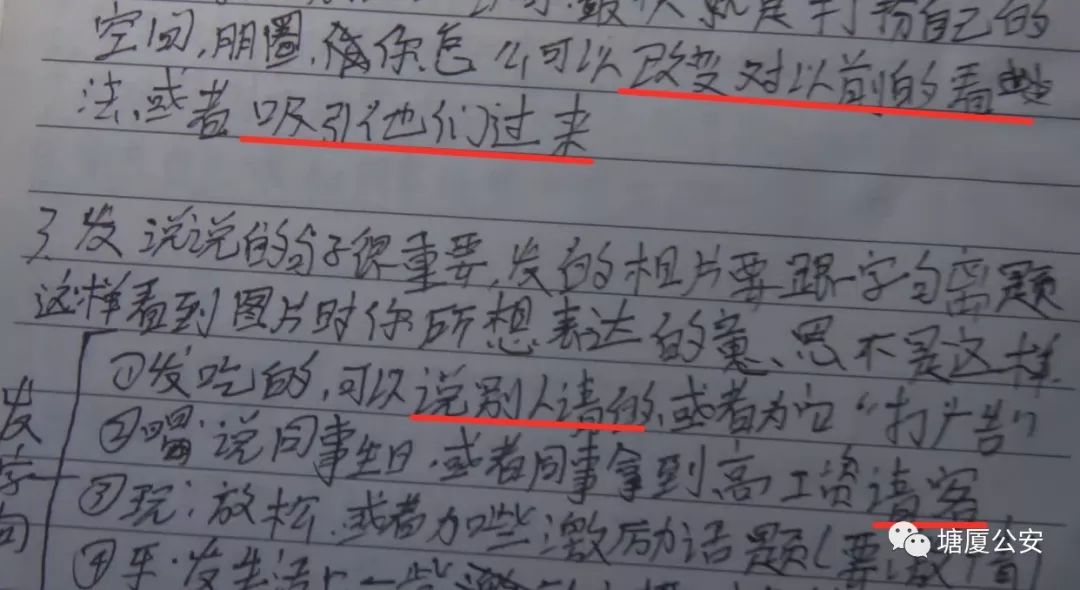 就是打扮自己的
空间,朋圈,像你怎么可以改变对以前的看
法,或者吸引他们过来
3、发说说的句子很重要,发的相片要跟字句离题
这样看到图片时你所想表达的意、思不是这样
发字句
①发吃的,可以说别人请的,或者为它“打广告”
②喝:说同事生日,或者同事拿到高工资请客
③玩:放松,或者加些激励话题(要激情)
④乐:发生活上一些
塘厦公安